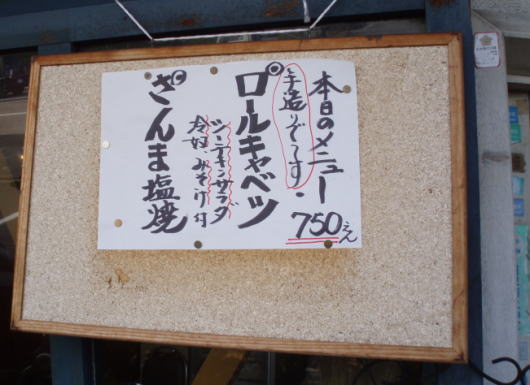 本日のメニュー
手造りです。
750えん
ロールキャベツ
ツーナキンサラダ
冷奴、みそ汁付
さんま塩焼